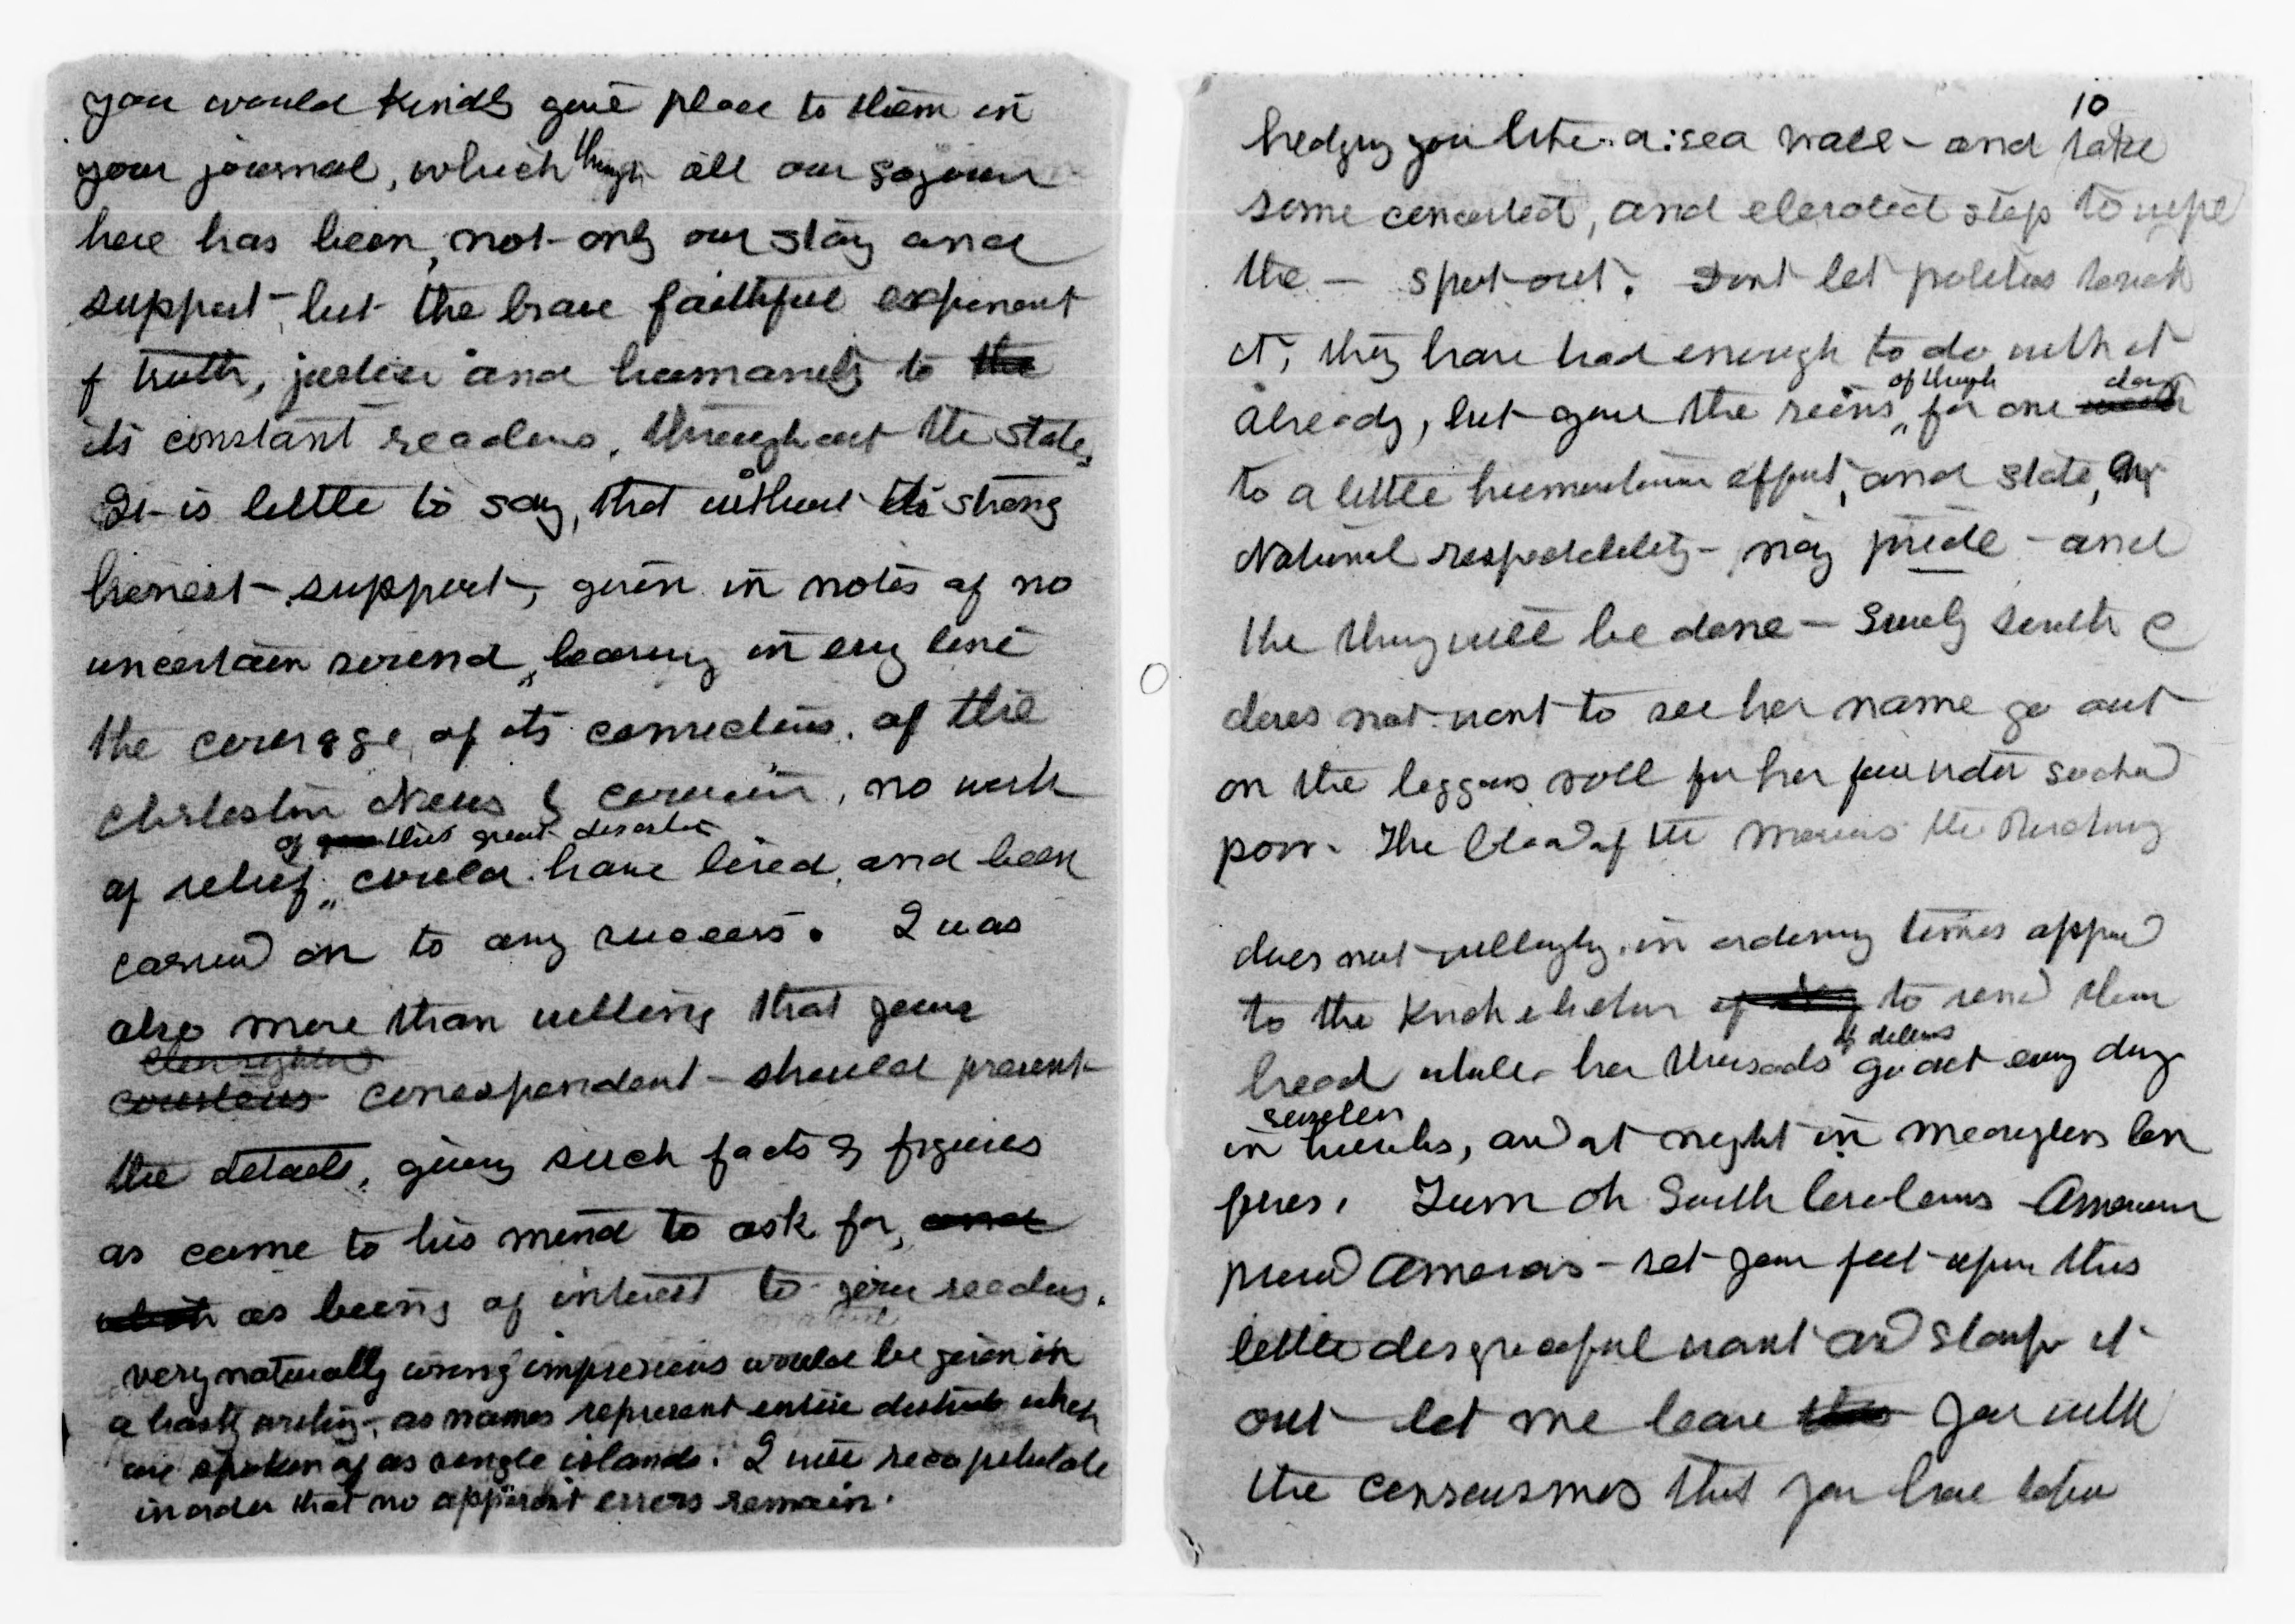 you would kindly give place to them in
your journal, which through all our sojourn
here has been, not only our stay and
support, but the brave faithful exponent
of truth, justice and humanity to the
its constant readers, throughout the state,
It is little to say, that without its strong
honest support, given in notes of no
uncertain sound, bearing in evry line
the courage, of its convictions, of the
Charleston News & Courier, no work
of this great disaster
of relief could have lived, and been
carried on to any success. I was
also more than willing that your
clear sighted
courteous correspondent - should present
the details, giving such facts & figures
as came to his mind to ask for, and
which as being of interest to your readers.
very naturally wrong impressions would be given in
a hasty writing, as names represent entire districts which
are spoken of as single islands. I will recapitulate
in order that no apparent errors remain.
10
hedging you like a sea wall - and take
some concerted, and elevated step to wipe
the - spot out. Dont let politics touch
it, they have had enough to do with it
of though day
already, but give the reins for one week
to a little humanitarian effort, and state, any
National respectability - nay pride - and
the thing will be done - Surely South C
does not want to see her name go out
on the beggars roll for her few
poor. The blood of the
does not willingly, in ordinary times appeal
to the to send them
of dollars
bread while her thousands go out every day
senseless
in bombs, and at night in meaningless bon
fires. Turn Oh South Carolinas American
proud Americas - set your feet upon this
little disgraceful want and stamp it
out - let me leave this you with
the consciousness that you have taken